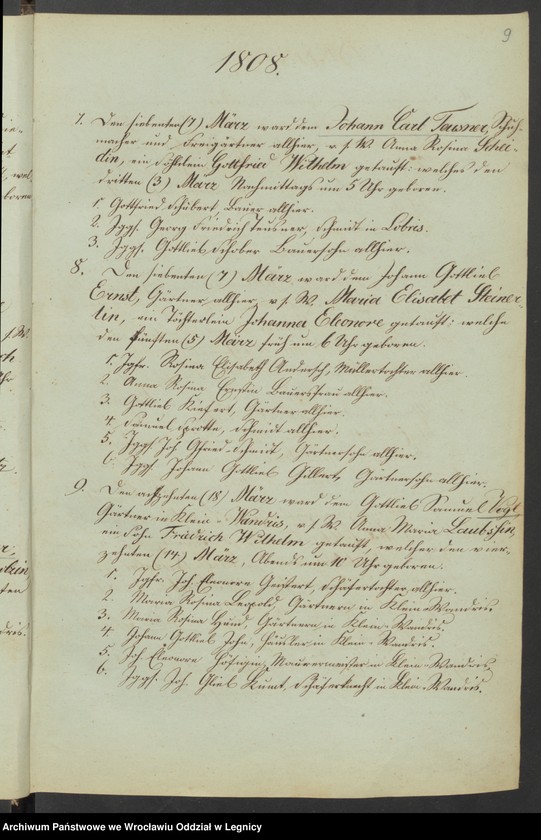 9
1808.
7. Den siebenten (7) März ward dem Johann Carl Teusner, Schuh-
macher und Freigärtner allhier, v. s. W. Anna Rosina
ein Söhnlein Gottfried Wilhelm getauft: welches den
dritten (3) März Nachmittags um 5 Uhr geboren.
1. Gottfried Schubert, Bauer allhier.
2. Jggs. Georg Friedrich Teusner, Schmidt in Lobris.
3. Jggs. Gottlieb Schober Bauersohn allhier.
8. Den siebenten (7) März ward dem Johann Gottlieb
Ernst, Gärtner allhier, v. s. W. Maria Elisabet Steiner-
tin, ein Töchterlein Johanna Eleonore getauft: welche
den fünften (5) März früh um 6 Uhr geboren.
1. Jgfr. Rosina Elisabeth Andersch, Müllertochter allhier.
2. Anna Rosina Ernstin Bauersfrau allhier.
3. Gottlieb Kiefert, Gärtner allhier.
4. Samuel Schmidt allhier.
5. Jggs Joh Gfried Schmidt, Gärtnersohn allhier.
6. Jggs Johann Gottlieb Gillert, Gärtnersohn allhier.
9. Den achtzehnten (18) März ward dem Gottlieb Samuel Vogt,
Gärtner in Klein-Wandris, v. s. W. Anna Maria
ein Sohn Friedrich Wilhelm getauft, welcher den vier-
zehnten (14) März, Abends um 10 Uhr geboren.
1. Jgfr. Joh. Eleonore Geisfert, Schäfertochter, allhier.
2. Maria Rosina Leopold, Gärtnerin in Klein-Wandris
3. Maria Rosina Hund, Gärtnerin in Klein-Wandris.
4. Johann Gottlieb John, Häusler in Klein-Wandris.
5. Joh Eleonore in Klein-Wandris
6. Jggs. Joh. Glieb Kunt, Schäferknecht in Klein-Wandris.
Archiwum Państwowe we Wrocławiu Oddział w Legnicy